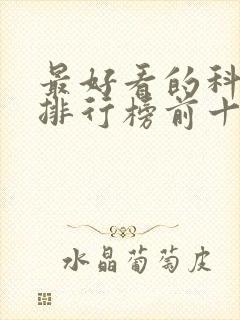 最好看的科
排行榜前十
水晶葡萄皮